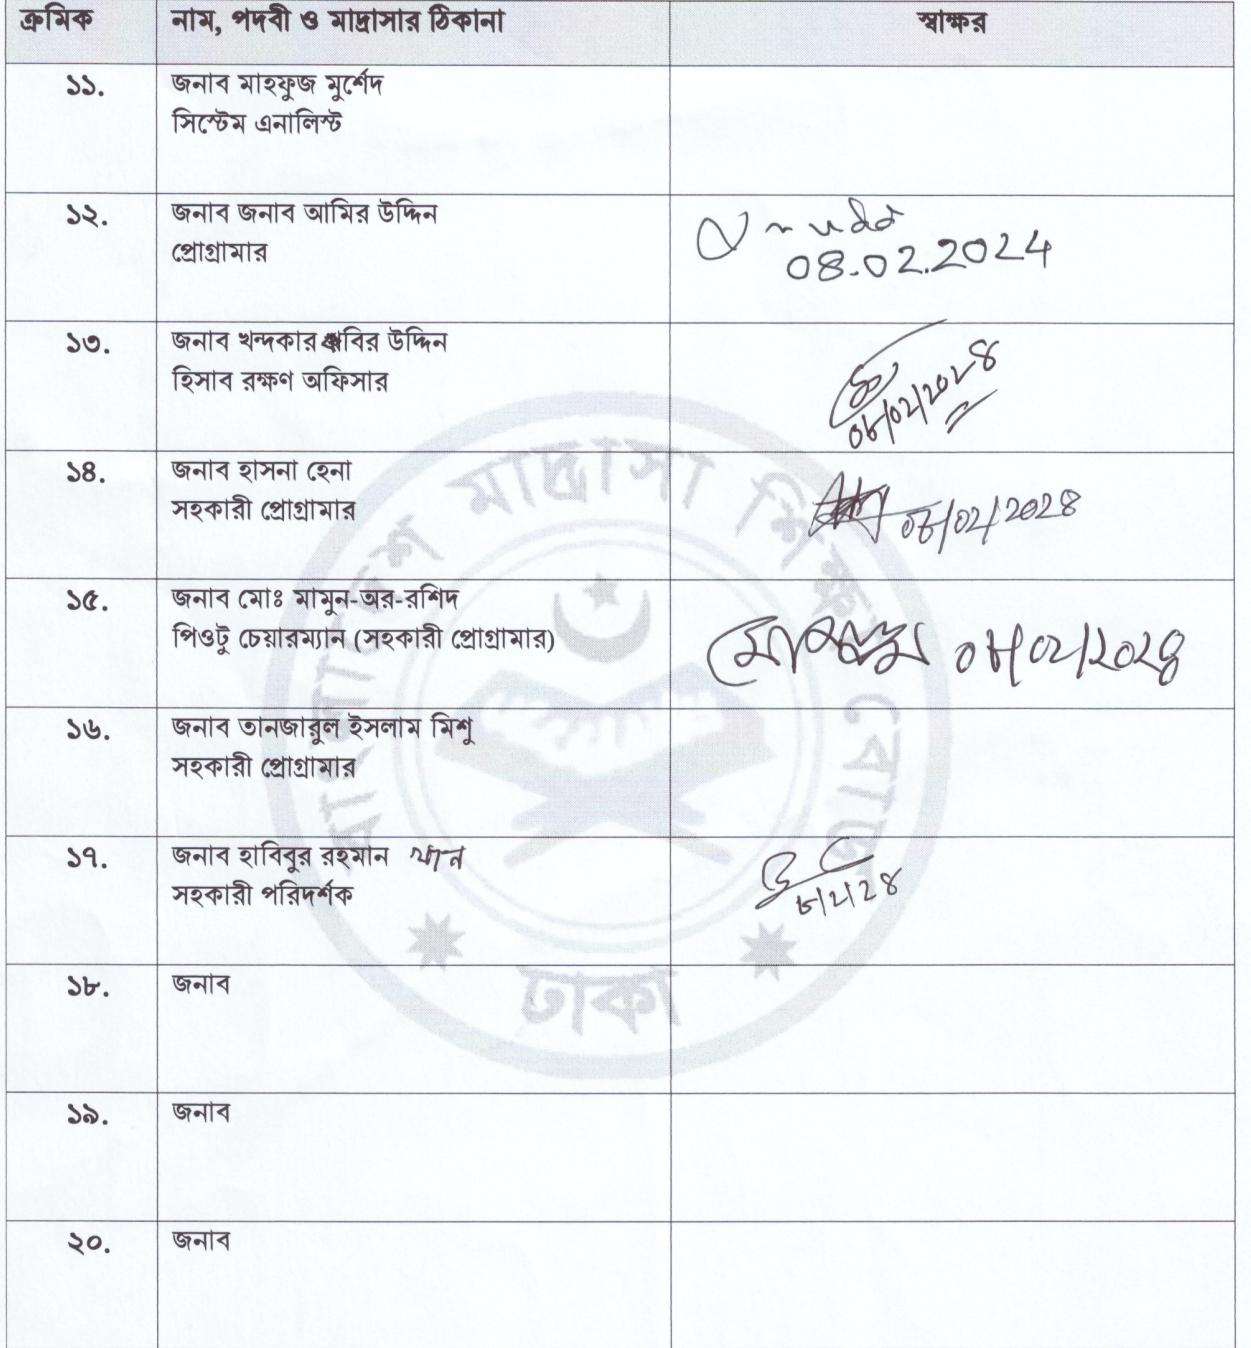 ক্রমিক নাম, পদবী ও মাদ্রাসার ঠিকানা স্বাক্ষর
১১. জনাব মাহফুজ মুর্শেদ
সিস্টেম এনালিস্ট
১২. জনাব জনাব আমির উদ্দিন
প্রোগ্রামার
08.02.2024
১৩. জনাব খন্দকার কবির উদ্দিন
হিসাব রক্ষণ অফিসার
০৮/০২/২০২৪
১৪. জনাব হাসনা হেনা
সহকারী প্রোগ্রামার
০৮/০২/২০২৪
১৫. জনাব মোঃ মামুন-অর-রশিদ
পিওটু চেয়ারম্যান (সহকারী প্রোগ্রামার)
০৮/০২/২০২৪
১৬. জনাব তানজারুল ইসলাম মিশু
সহকারী প্রোগ্রামার
১৭. জনাব হাবিবুর রহমান খান
সহকারী পরিদর্শক
৮/২/২৪
১৮. জনাব
১৯. জনাব
২০. জনাব
বাংলাদেশ মাদ্রাসা শিক্ষা বোর্ড
ঢাকা